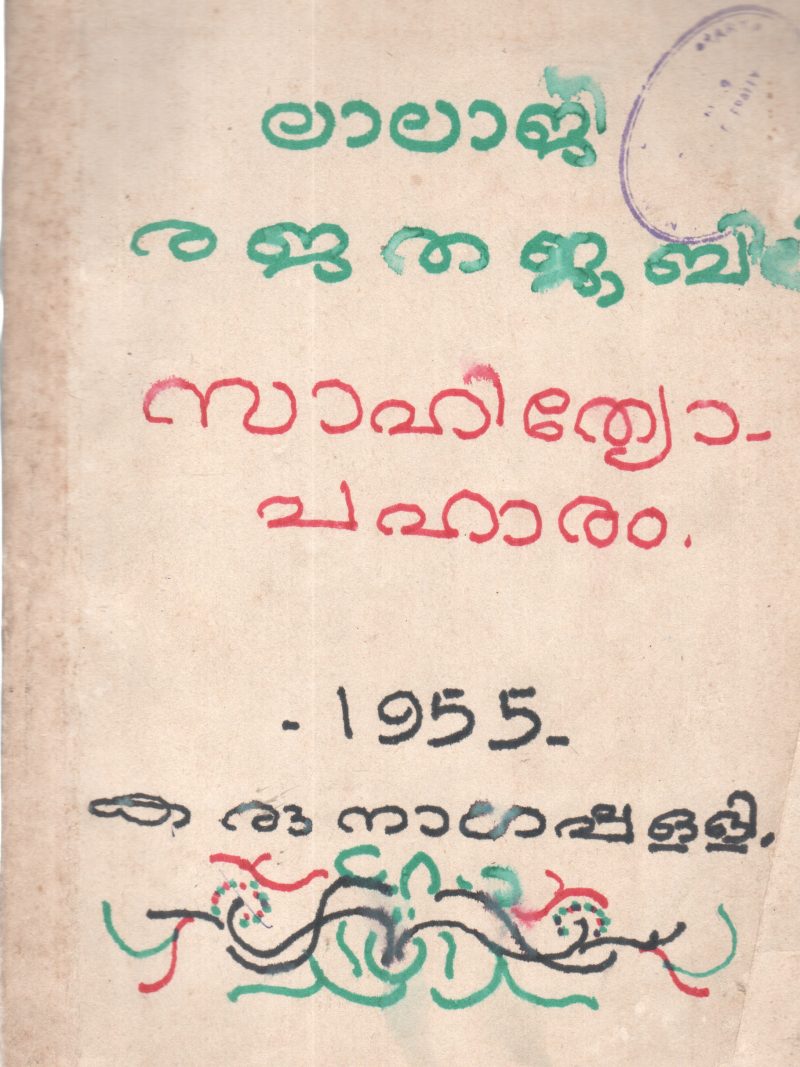 ലാലാജി
രജതജൂബിലി
സാഹിത്യോ-
പഹാരം.
-1955-
കരുനാഗപ്പള്ളി.